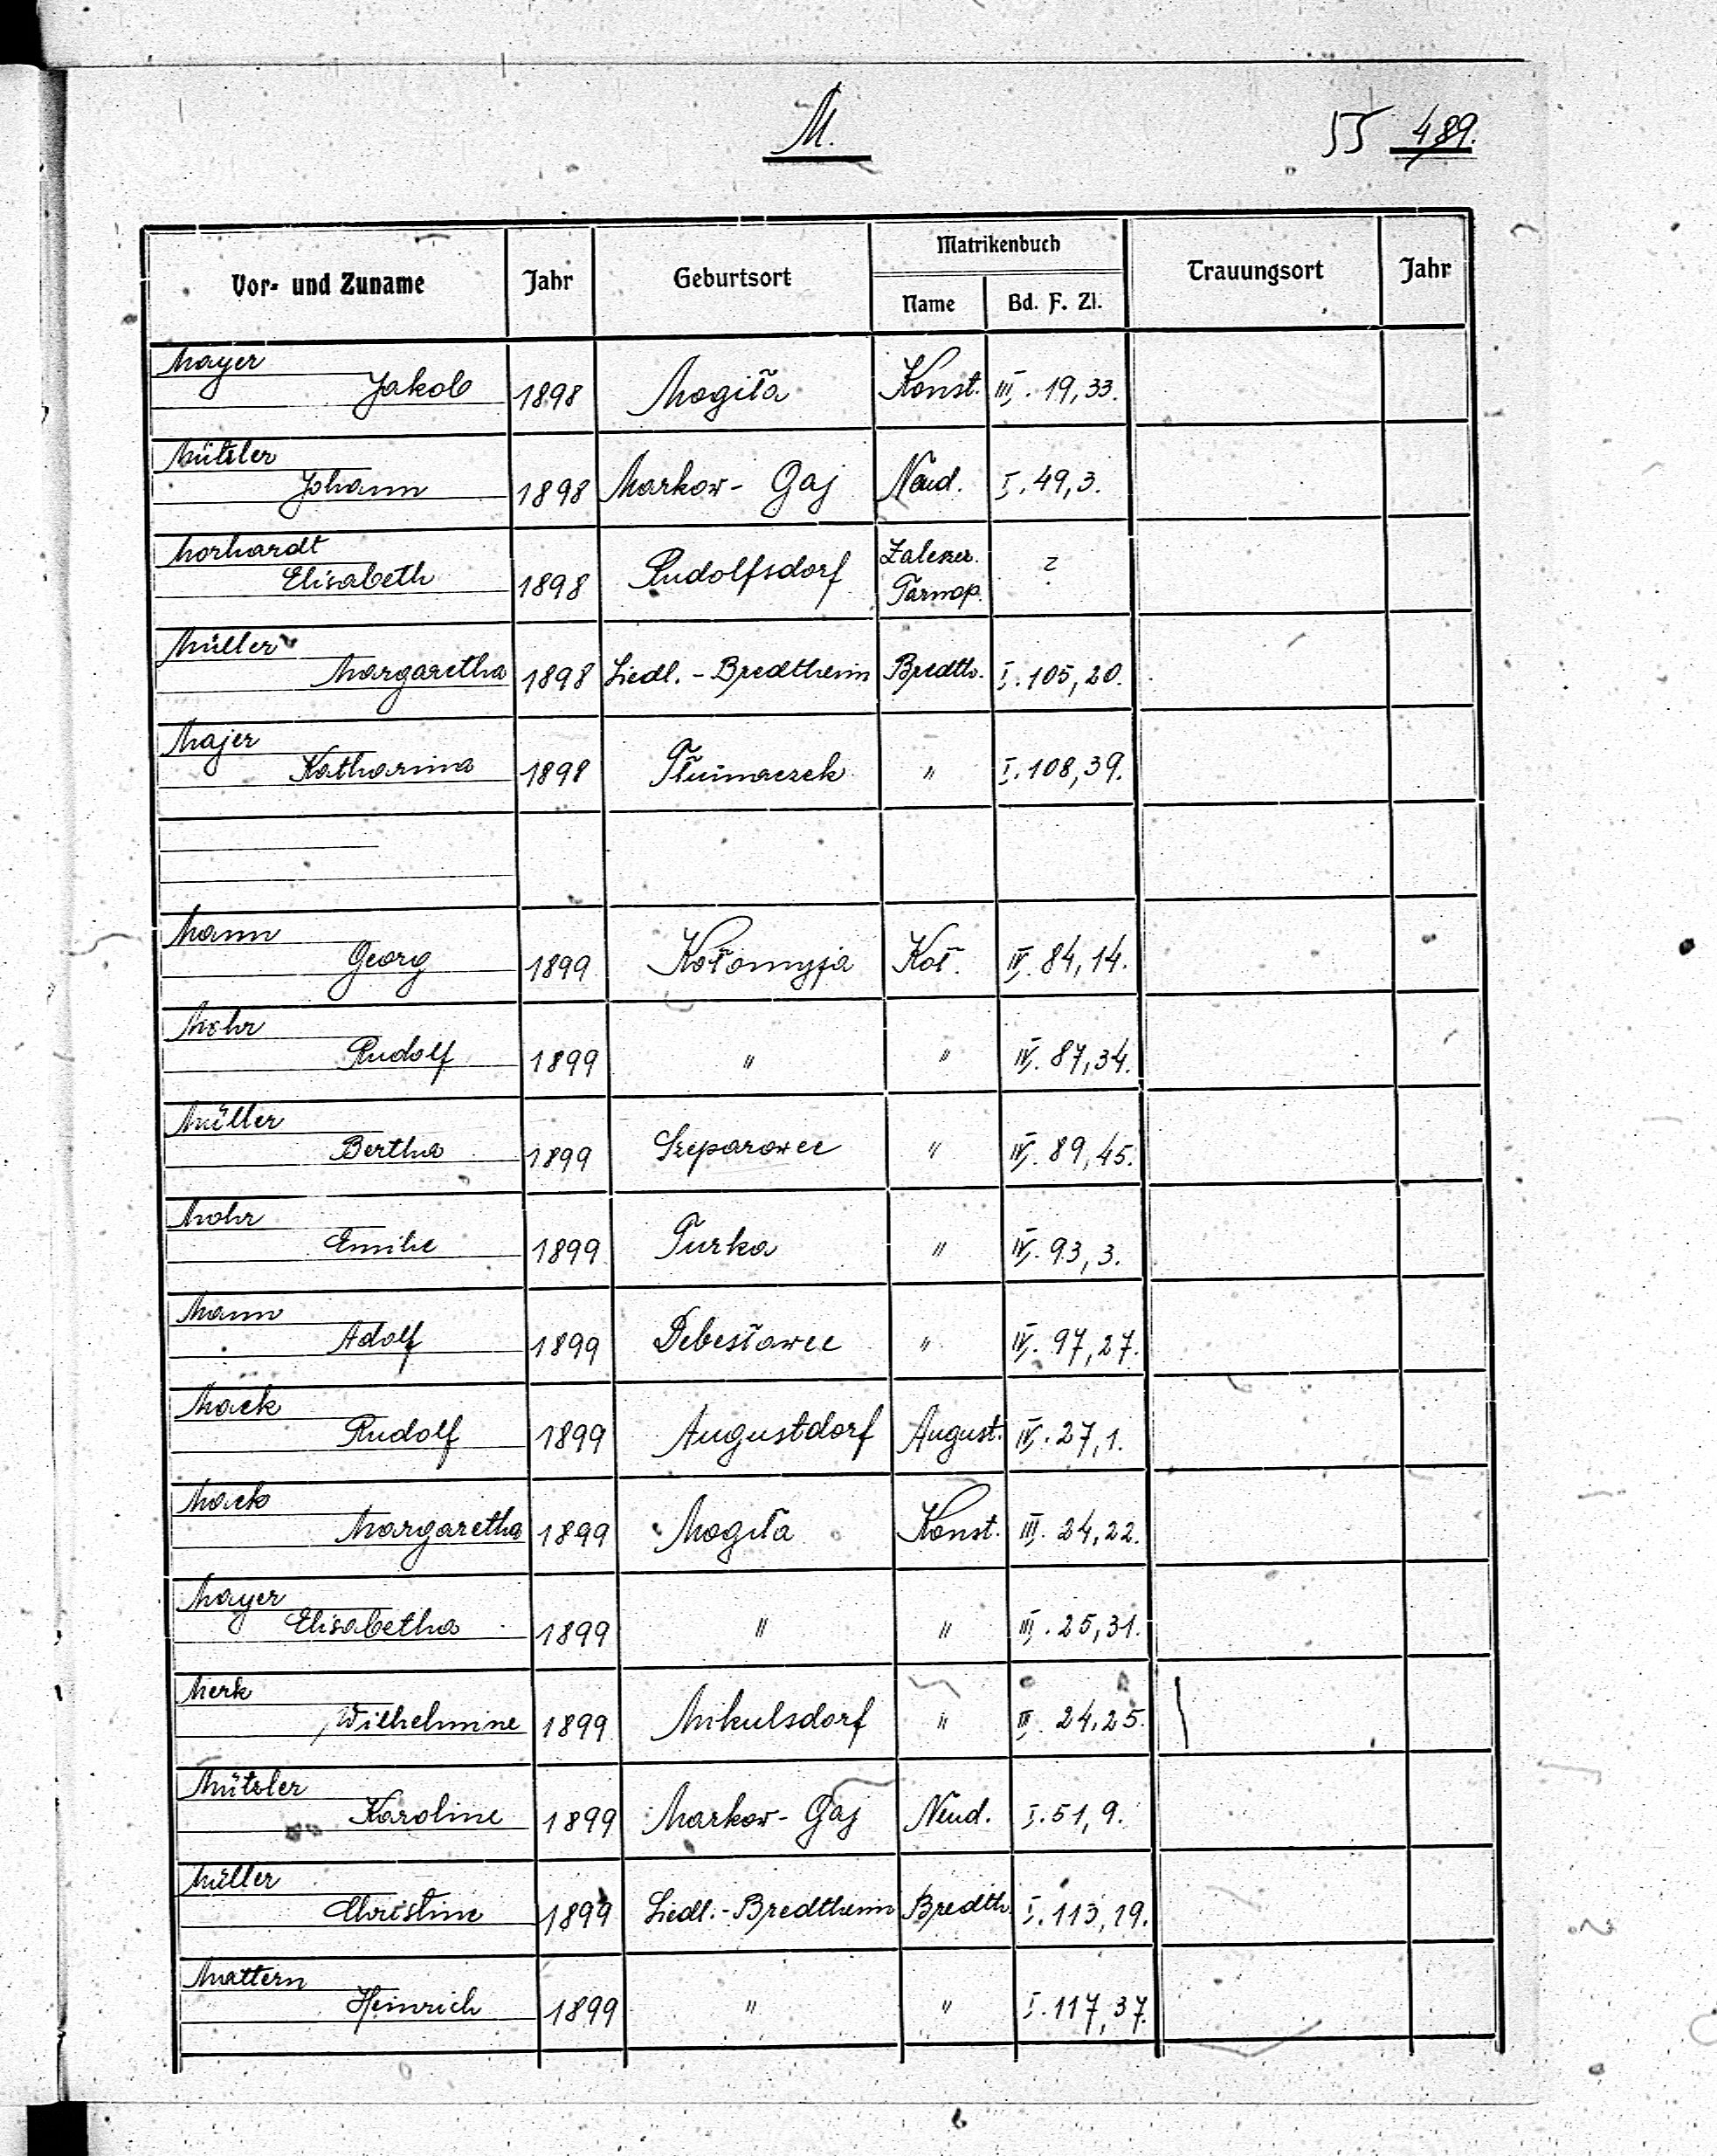 M.
55 489.
Vor- und Zuname Jahr Geburtsort Matrikenbuch Trauungsort Jahr
Name Bd. F. Zl.
Mayer
Jakob 1898 Mogiła Konst. III. 19, 33.
Mützler
Johann 1898 Markow- Gaj Neud. I. 49, 3.
Morhardt
Elisabeth 1898 Rudolfsdorf Zaleszcz. Tarnop. ?
Müller
Margaretha 1898 Siedl. - Bredtheim Bredth. I. 105, 20.
Majer
Katharina 1898 Tłumaczek " I. 108, 39.
Mann
Georg 1899 Kołomyja Koł. IV. 84, 14.
Mohr
Rudolf 1899 " " IV. 87, 34.
Müller
Bertha 1899 Szeparowce " IV. 89, 45.
Mohr
Emilie 1899 Turka " IV. 93, 3.
Mann
Adolf 1899 Debesławce " IV. 97, 27.
Mack
Rudolf 1899 Augustdorf August. IV. 27, 1.
Mack
Margaretha 1899 Mogiła Konst. III. 24, 22.
Mayer
Elisabetha 1899 " " III. 25, 31.
Merk
Wilhelmine 1899 Mikulsdorf " III. 24, 25.
Mützler
Karoline 1899 Markow- Gaj Neud. I. 51, 9.
Müller
Christine 1899 Siedl. - Bredtheim Bredth. I. 113, 19.
Mattern
Heinrich 1899 " " I. 117, 37.